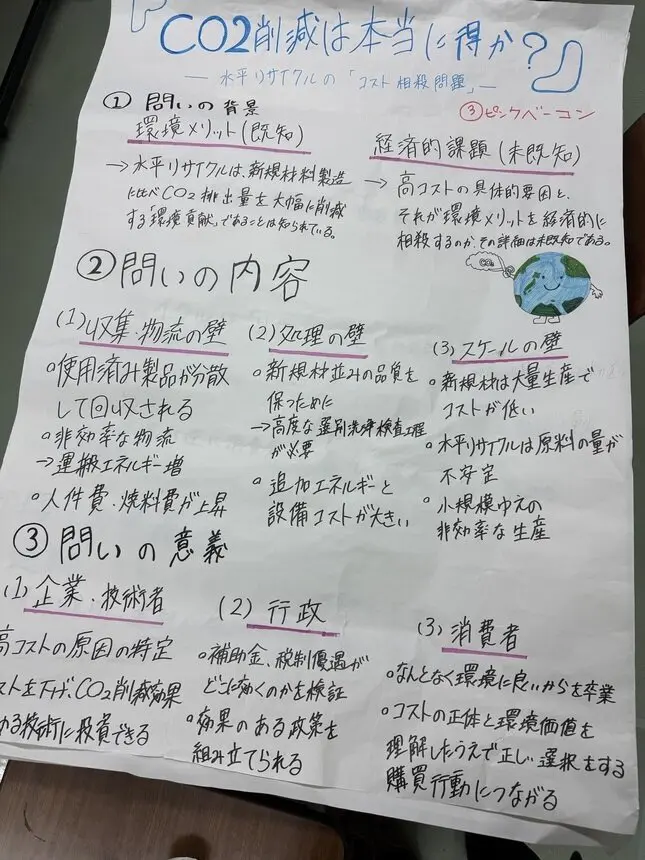 CO2削減は本当に得か?
― 水平リサイクルの「コスト相殺問題」―
① 問いの背景
③ピンクベーコン
環境メリット(既知)
→水平リサイクルは、新規材料製造
に比べCO2排出量を大幅に削減
する「環境貢献」であることは知られている。
経済的課題(未既知)
→ 高コストの具体的要因と、
それが環境メリットを経済的に
相殺するのか、その詳細は未既知である。
CO2
②問いの内容
(1)収集・物流の壁
○使用済み製品が分散
して回収される
○非効率な物流
→運搬エネルギー増
○人件費・燃料費が上昇
(2)処理の壁
○新規材並みの品質を
保つために
→高度な選別洗浄検査工程
が必要
○追加エネルギーと
設備コストが大きい
(3)スケールの壁
○新規材は大量生産で
コストが低い
○水平リサイクルは原料の量が
不安定
○小規模ゆえの
非効率な生産
③問いの意義
(1)企業・技術者
高コストの原因の特定
ストを下げ、CO2削減効果
る技術に投資できる
(2)行政
○補助金、税制優遇が
どこに効くのかを検証
○効果のある政策を
組み立てられる
(3)消費者
○なんとなく環境に良いからを卒業
○コストの正体と環境価値を
理解したうえで正しい選択をする
購買行動につながる